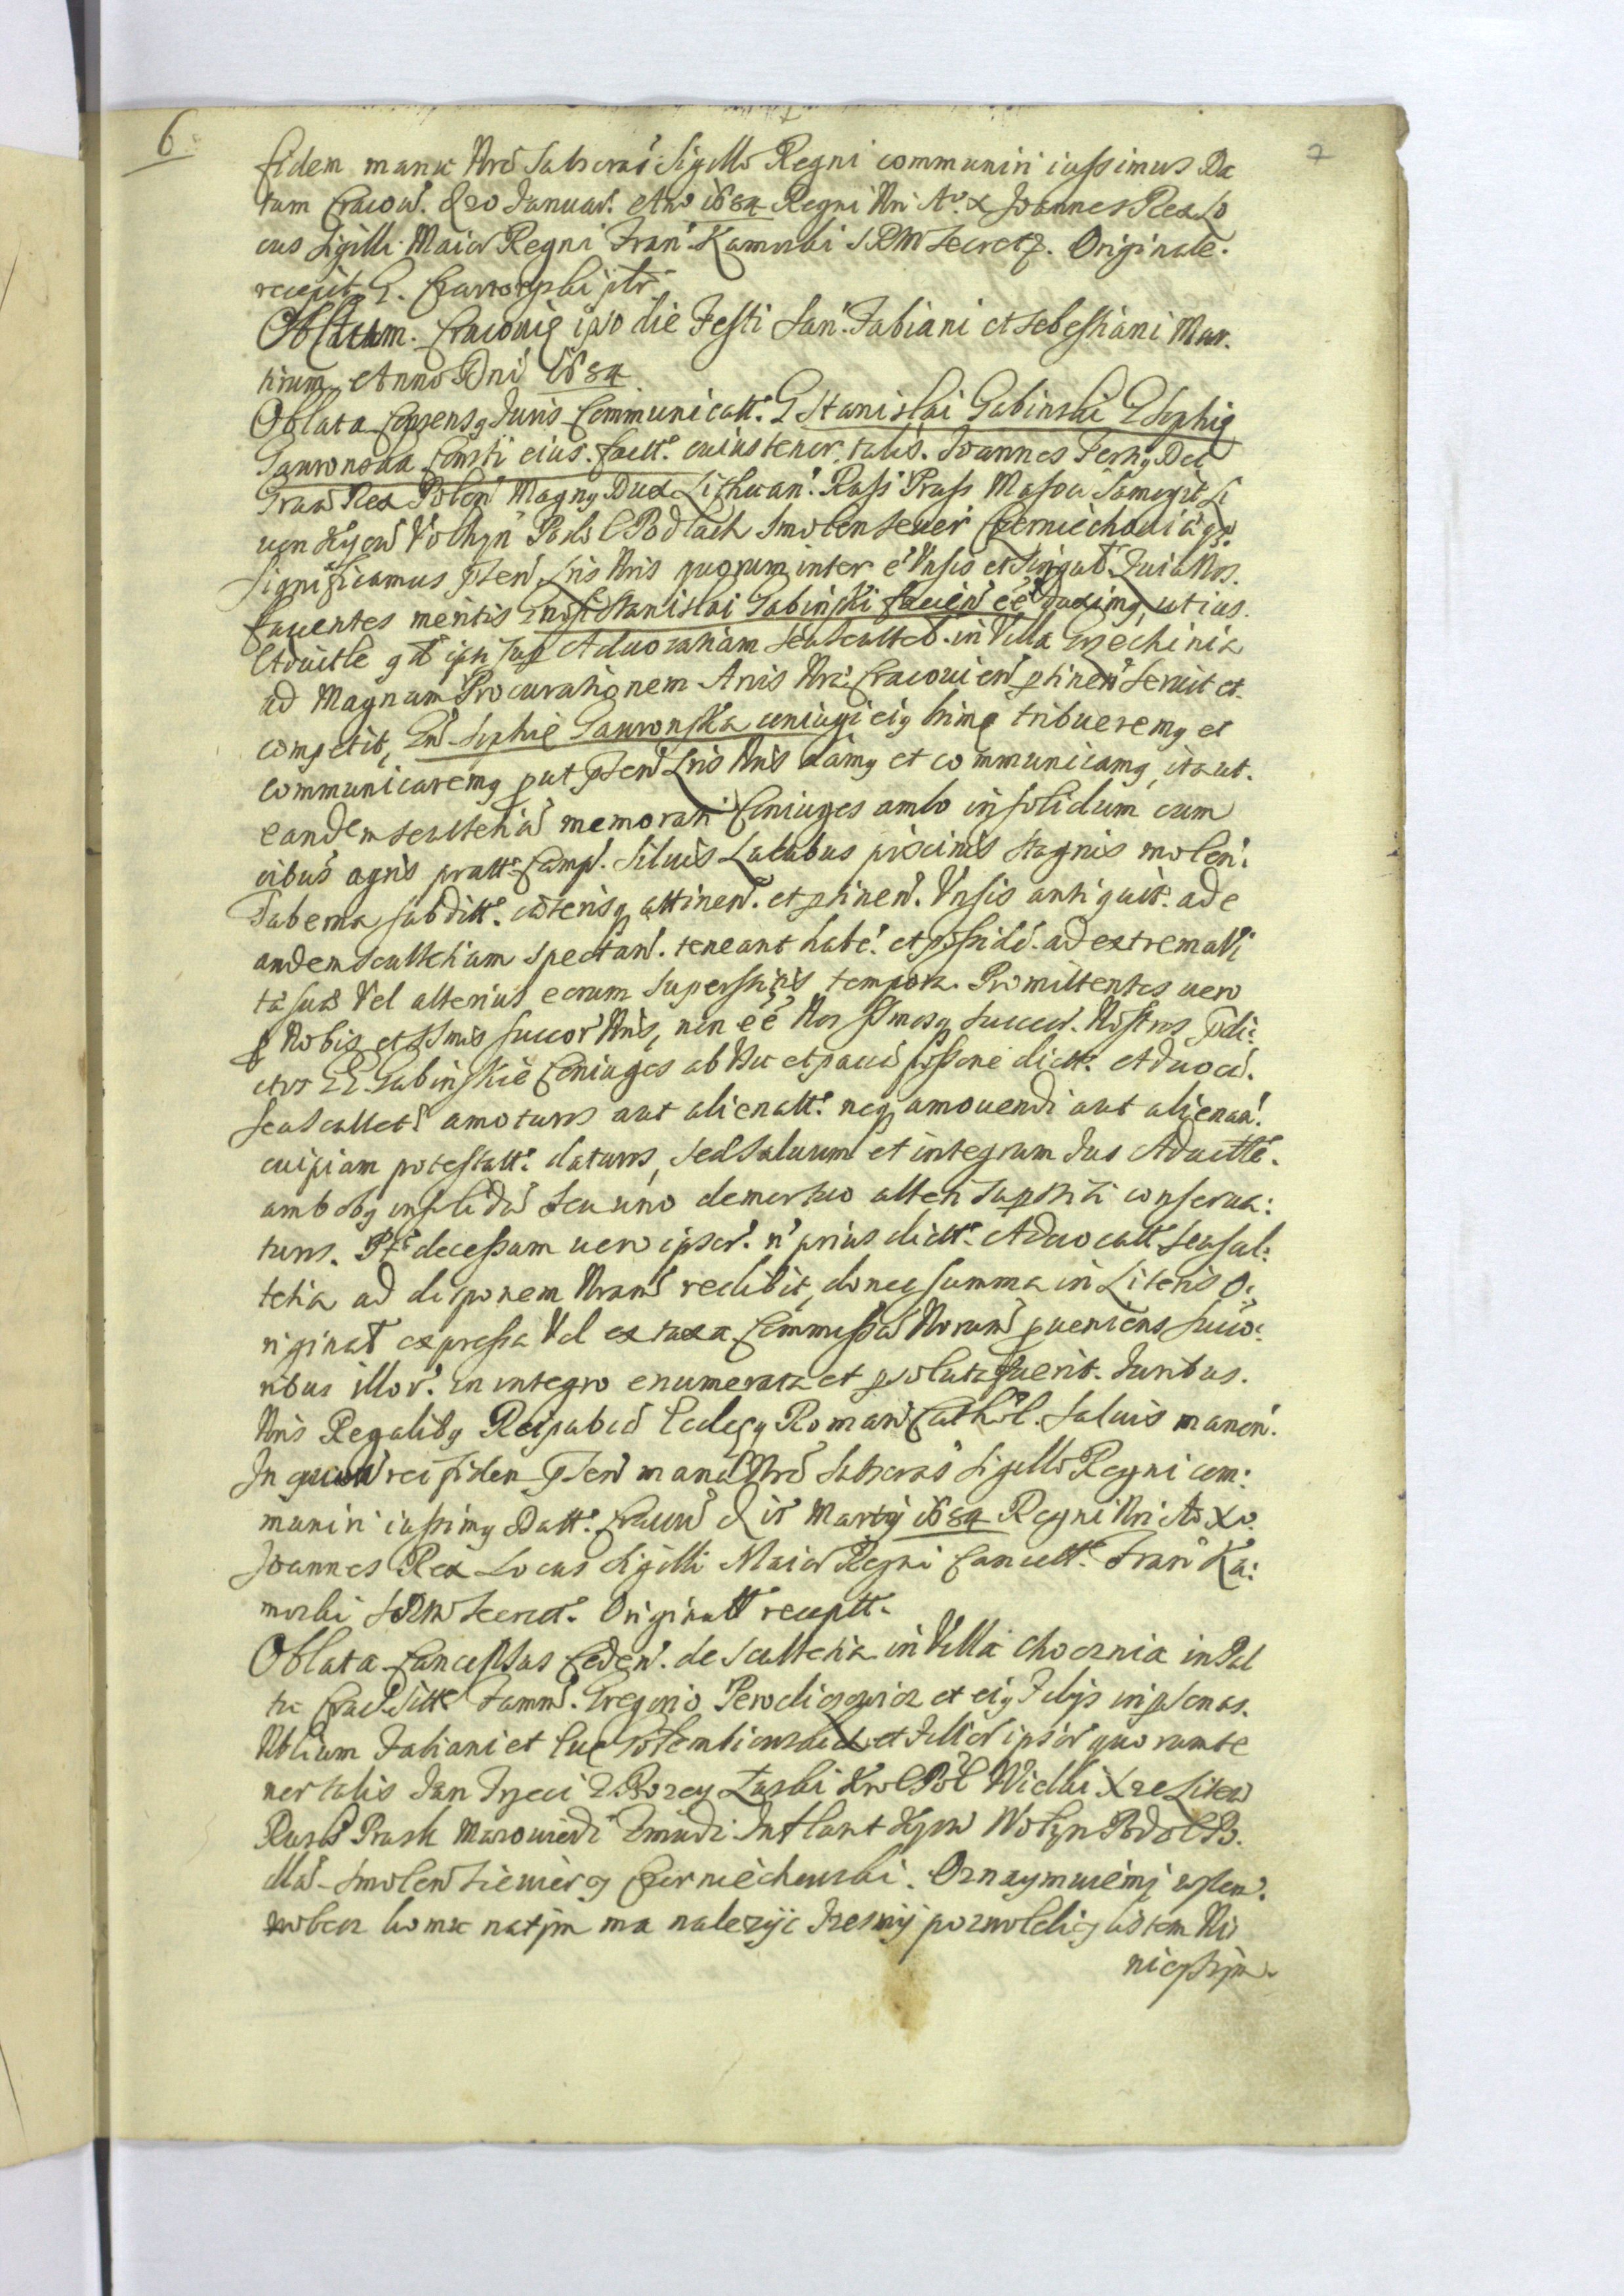 6
7
fidem manu Nra Subscras Sigillo Regni communiri iussimus Da
tum Cracov. d 20 Januar. Ano 1684 Regni Nri Ao. X Joannes Rex Lo
cus Sigilli Maior Regni Fran. Kamocki SRM Secret. Originale.
recepit G. ptr
Oblatum. Cracovię ipso die Festi San. Fabiani et Sebestiani Mar.
tirum Anno Dni 1684
Oblata Consensq Juris Communicatt. G Stanislai Gabinski G Sophię
Gawronska Consti eius. factt. cuius tenor talis. Joannes Tertiq Dei
Graa Rex Polon Magnq Dux Lithuan. Russ Pruss Masou Samogit Li
uon Kyow Volhyn Podol Podlach Smolen Seuer Czerniechouiaq.
Significamus pten Lris Nris quorum inter e Vnsis et Singul. Quia Nos
fauentes meritis Gnosi Stanislai Gabinski facien eé duximq ut ius.
Aduitle qd ipsi sup Aduocatiam seu Scultet. in Villa
ad Magnam Procurationem Arcis Nrae Cracouien ptinen Seruit et
competit, Gn Sophię Gawronska coniugi eiq tribueremq et
communicaremq put pten Lris Nris damq et communicamq, ita ut.
eandem Scultetia memorati Coniuges ambo insolidum cum
oibus agris pratt. Camp. Siluis Lacubus piscinis Stagnis molen.
Taberna subditt. coterisq attinen. et ptinen. Vnsis antiquit. ad e
andem Scultetiam spectan. teneant habe. et possid. ad extrema Vi
ta sua Vel alterius eorum Superstitis tempora. Promittentes uero
p Nobis et Smis Succor Nris, non eé Nos Smosq Succes. Nostros pdi:
ctos GG. Gabinskie Coniuges ab Vsu et paci possone dictt. Aduoca.
seu Scultet. amoturos aut alienatt. neq amouendi aut alienan.
cuipiam potestatt. daturos, sed Saluum et integrum Jus Aduitle.
ambobq insolidu seu uno demortuo alteri Supstiti conserua:
turos. Pt decessum uero ipsor. n prius dictt. Aduocatt seu scul:
tetia ad disponem Nram redibit, doneq summa in Literis O:
riginal expressa Vel ex taxa Commissa Noram pueniens Succo:
ribus illor. in integro enumerata et psoluta fuerit. Juribus.
Nris Regalibq Reipubca Eccleqq Roman Cathol. Saluis manen.
In quoru rei fidem pten manu Nra Subscras Sigillo Regni com:
muniri iussimq Datt. Cracov d 15 Martij 1684 Regni Nri Ao Xo.
Joannes Rex Locus Sigilli Maior Regni Cancell. Fran Ka:
mocki SRM Secret. Originall receptt.
Oblata Consessus Ceden. de Scultetia in Villa Chocznia in Pal
tu Crac Sitte Famm. Gregorio et eiq Filijs in psonas.
Nblium Fabiani et Lucę et Filior ipsor quorum te
nor talis Jan Trzeci Z Bozey Łaski Krol Pol Wielki Xze Litew
Ruski Prusk Mazowieck Zmudz Inflant Kyow Wolyn Podol Po.
dla Smolen Siewier y Czerniechowski. Oznaymuiemy
wobec komu natym ma nalezyc Izesmy pozwolili y listem Ni
nieyszym.